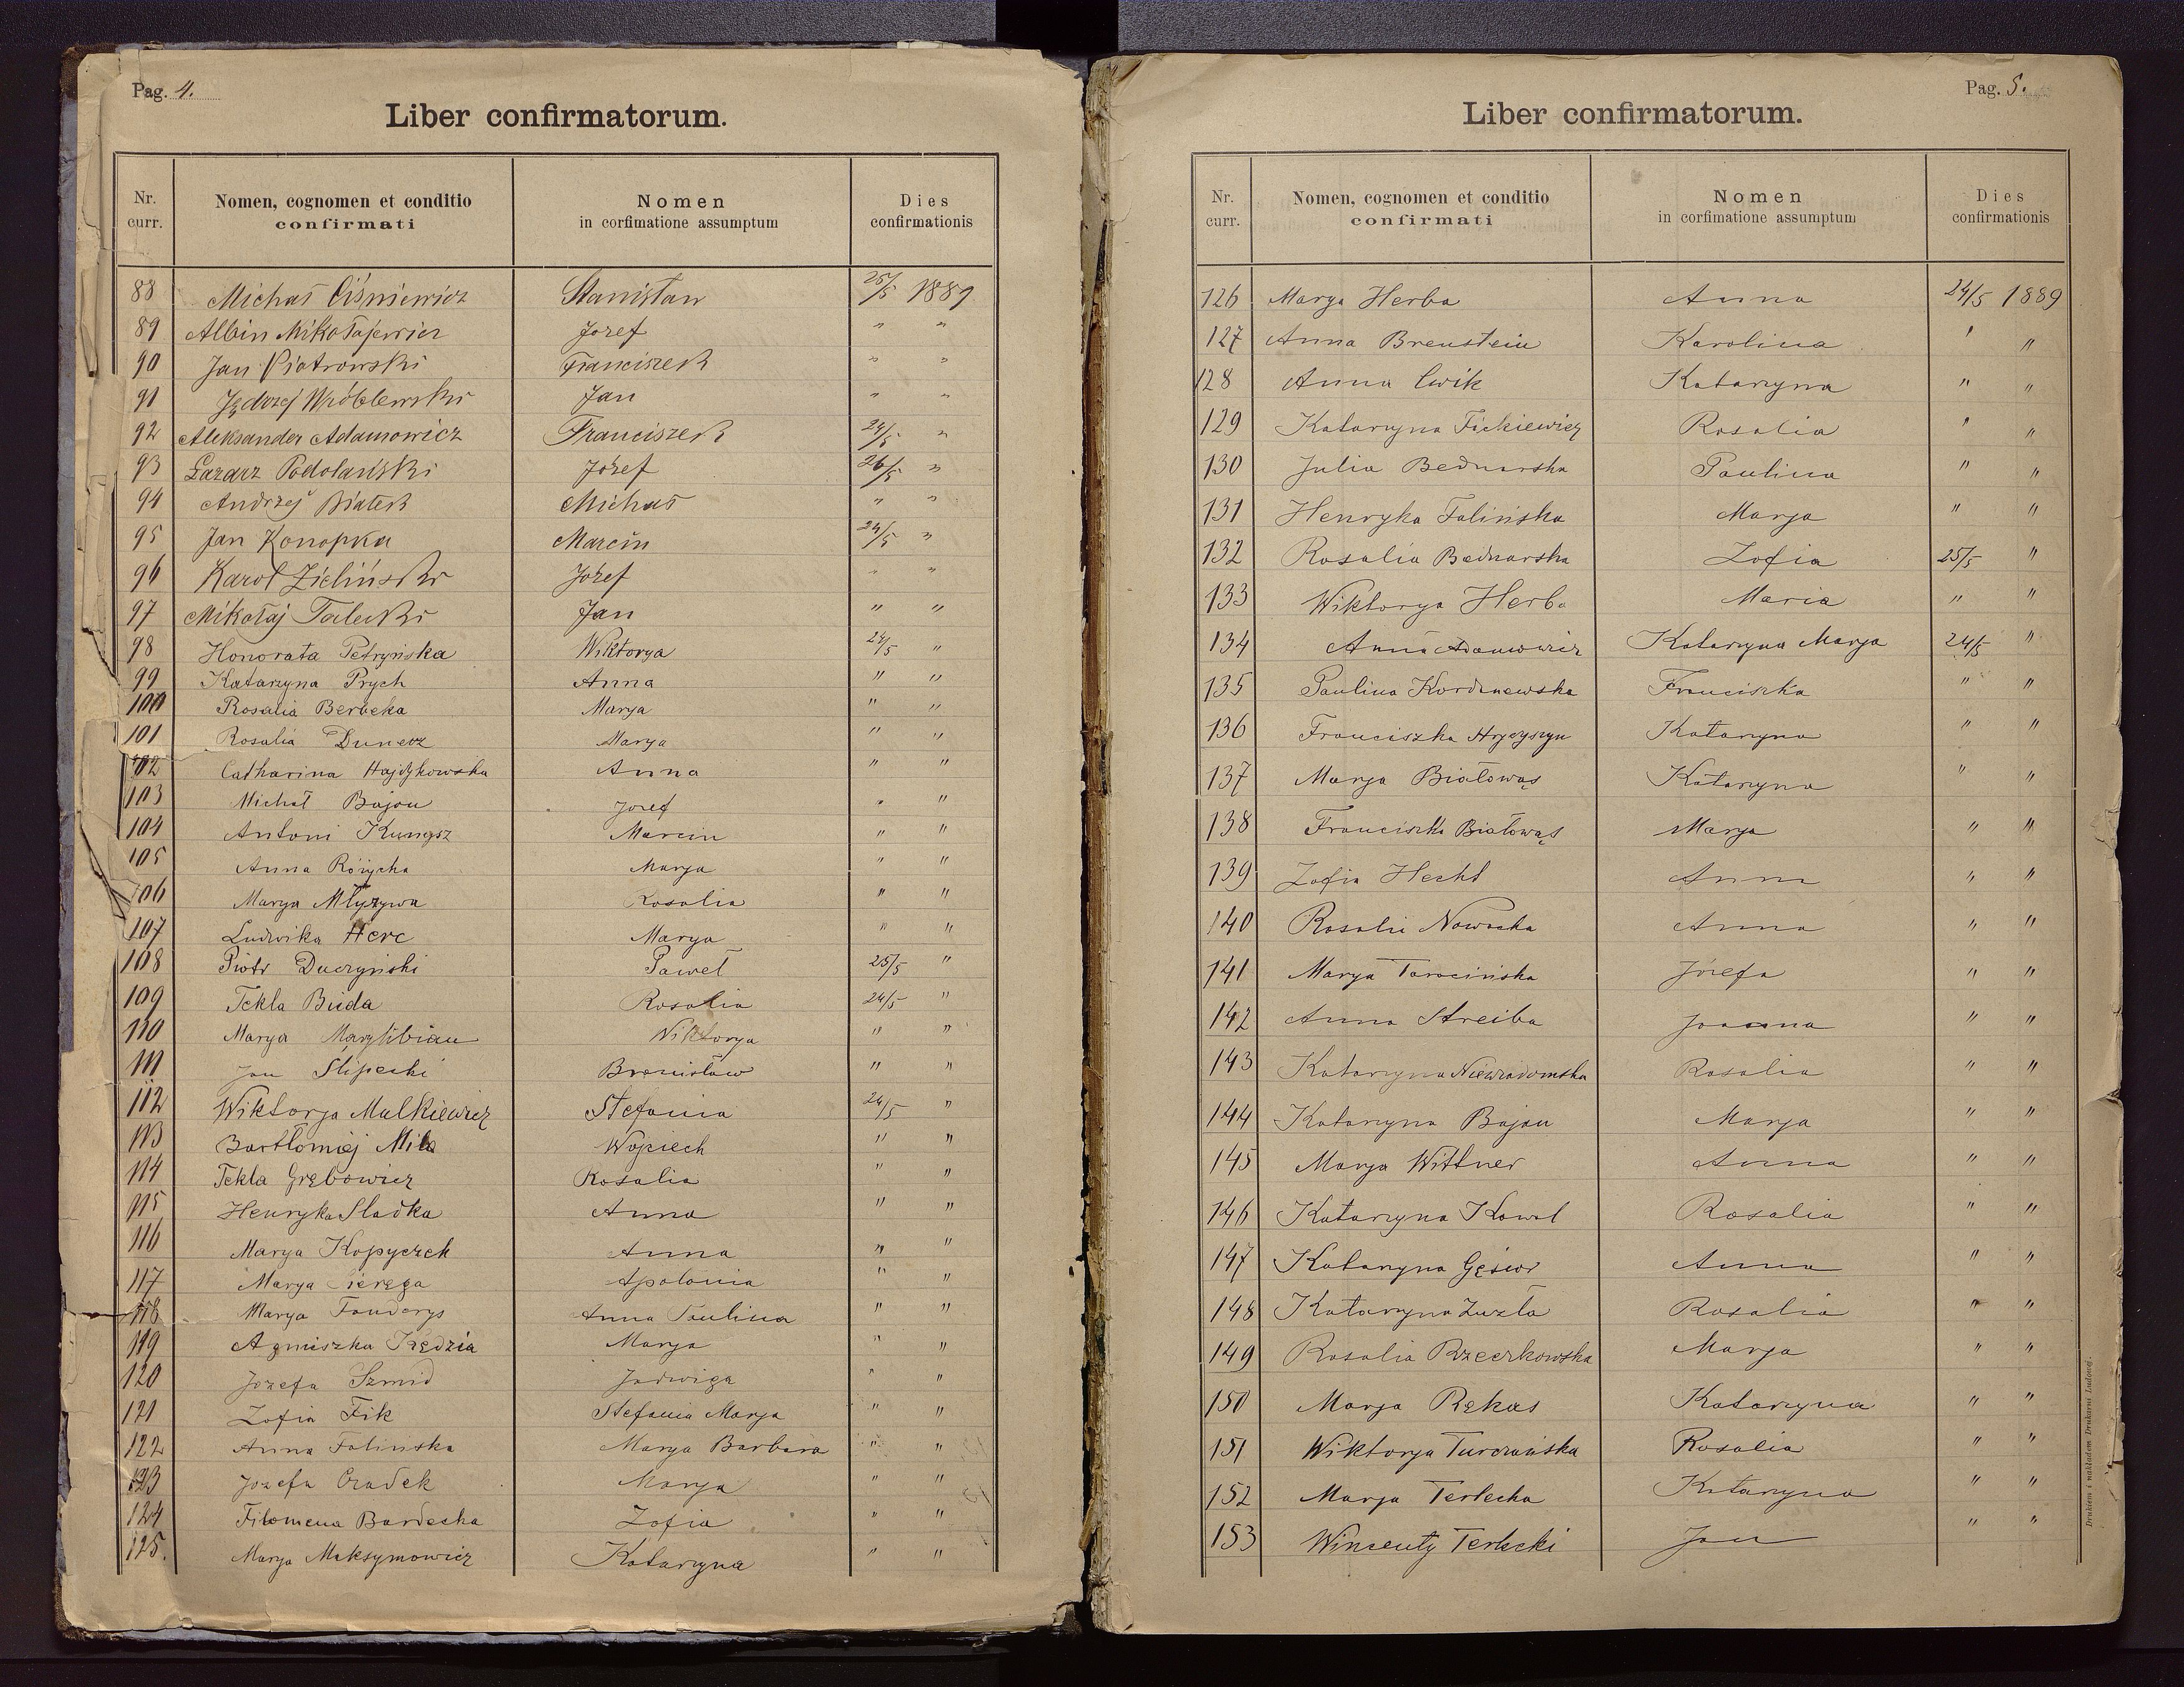 Pag. 4.
Liber confirmatorum.
Nr. curr. Nomen, cognomen et conditio confirmati Nomen in corfimatione assumptum Dies confirmationis
88 Michał Ciśniewicz Stanisław 25/5 1889
89 Albin Mikołajewicz Jozef " "
90 Jan Piotrowski Franciszek " "
91 Jędrzej Wróblewski Jan " "
92 Aleksander Adamowicz Franciszek 24/5 "
93 Łazarz Podolański Józef 26/5 "
94 Andrzej Białek Michał " "
95 Jan Konopka Marcin 24/5 "
96 Karol Zieliński Józef " "
97 Mikołaj Jan " "
98 Honorata Petryńska Wiktorya 24/5 "
99 Katarzyna Prych Anna " "
100 Rosalia Berbeka Marya " "
101 Rosalia Dunecz Marya " "
102 Catharina Hajdykowska Anna " "
103 Michał Bajou Jozef " "
104 Antoni Kungsz Marcin " "
105 Anna Różycka Marya " "
106 Marya Młyzywa Rosalia " "
107 Ludwika Herc Marya " "
108 Piotr Duczyński Paweł 25/5 "
109 Tekla Buda Rosalia 24/5 "
110 Marya Wiktorya " "
111 Jan Slipecki Bronisław " "
112 Wiktorja Malkiewicz Stefania 24/5 "
113 Bartłomiej Mila Wojciech " "
114 Tekla Grębowicz Rosalia " "
115 Henryka Sladka Anna " "
116 Marya Kopyczek Anna " "
117 Marya Sieręga Apolonia " "
118 Marya Fonderys Anna Paulina " "
119 Agnieszka Kędzia Marya " "
120 Jozefa Szmid Jadwiga " "
121 Zofia Fik Stefania Marya " "
122 Anna Falińska Marya Barbara " "
123 Jozefa Czadek Marya " "
124 Filomena Bardecka Zofia " "
125. Marya Maksymowicz Katarzyna " "
Pag. 5.
Liber confirmatorum.
Nr. curr. Nomen, cognomen et conditio confirmati Nomen in corfimatione assumptum Dies confirmationis
126 Marya Herba Anna 24/5 1889
127 Anna Brenstein Karolina " "
128 Anna Cwik Katarzyna " "
129 Katarzyna Fickiewicz Rosalia " "
130 Julia Bednarska Paulina " "
131 Henryka Falińska Marja " "
132 Rosalia Bednarska Zofia 25/5 "
133 Wiktorya Herba Maria " "
134 Anna Adamowicz Katarzyna Marja 24/5 "
135 Paulina Kordenewska Franciszka " "
136 Franciszka Hryczyszyn Katarzyna " "
137 Marja Białowąs Katarzyna " "
138 Franciszka Białowąs Marya " "
139 Zofia Hecht Anna " "
140 Rosalia Nowacka Anna " "
141 Marya Tarocińska Józefa " "
142 Anna Streiba Joanna " "
143 Katarzyna Niewiadomska Rosalia " "
144 Katarzyna Bajou Marja " "
145 Marja Wittner Anna " "
146 Katarzyna Kowal Rosalia " "
147 Katarzyna Gęsior Anna " "
148 Katarzyna Zuzla Rosalia " "
149 Rosalia Rzeczkowska Marja " "
150 Marja Rękas Katarzyna " "
151 Wiktorja Turczańska Rosalia " "
152 Marja Terlecka Katarzyna " "
153 Wincenty Terlecki Jan " "
Drukiem i nakładem Drukarni Ludowej.